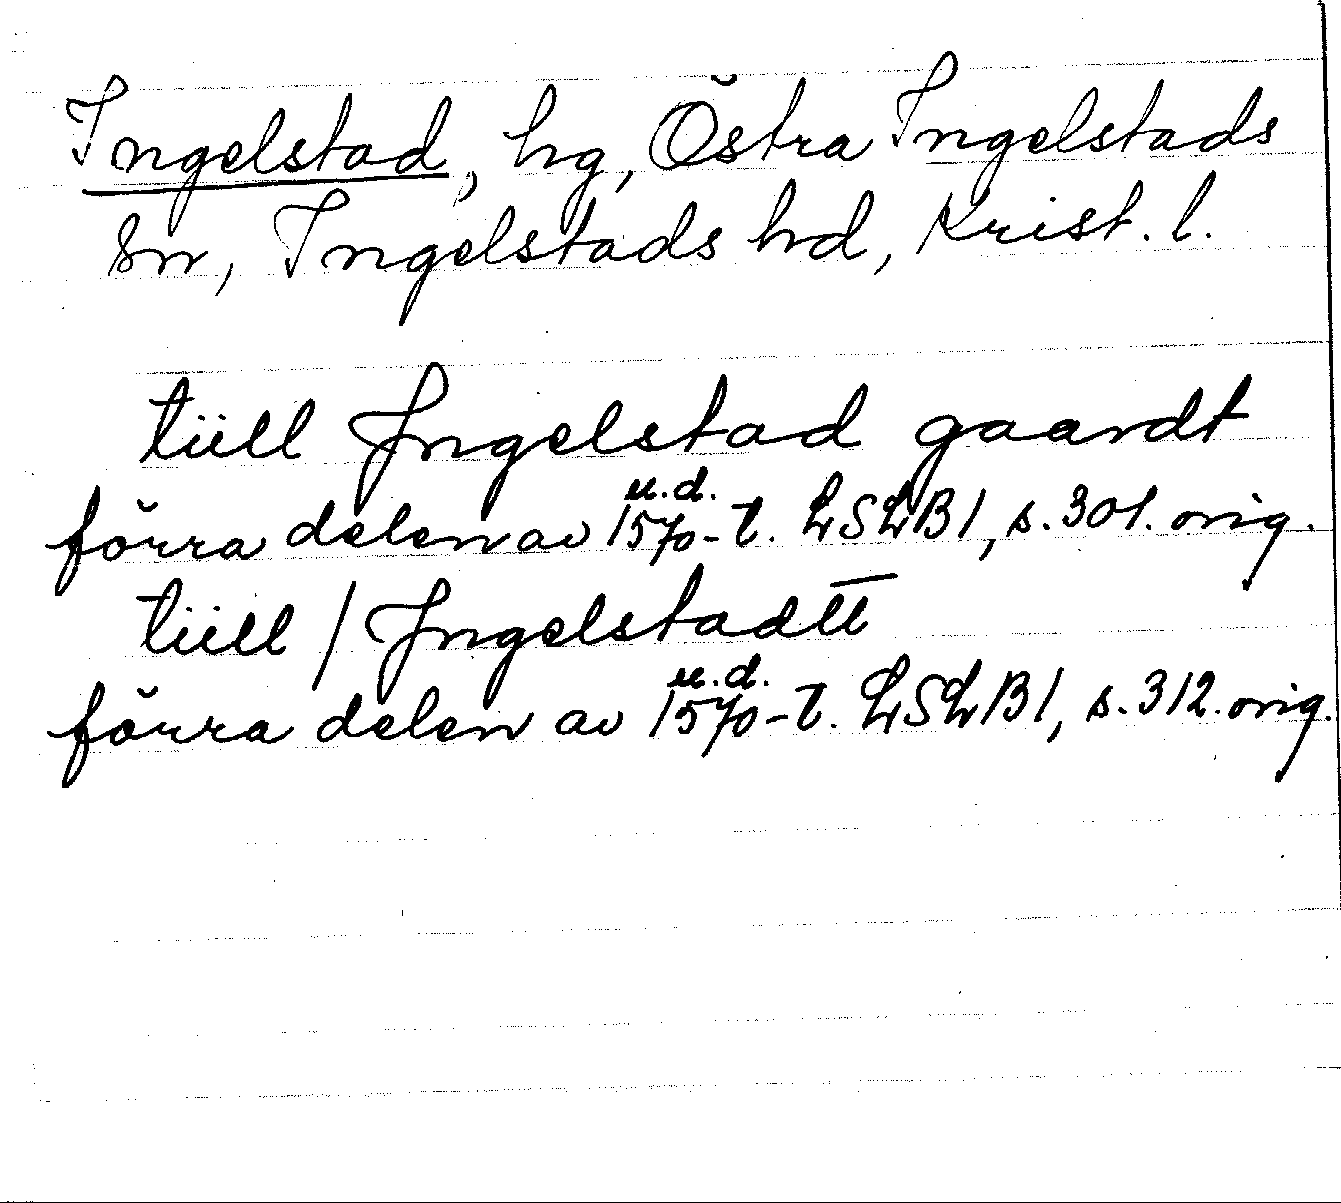 Ingelstad, hg, Östra Ingelstads
sn, Ingelstads hd, Krist. l.
tiill Jngelstad gaardt
förra delen av 1570-t. u.d. LSLB1, s. 301. orig.
tiill / Jngelstadtt
förra delen av 1570-t. u.d. LSLB1, s. 312. orig.